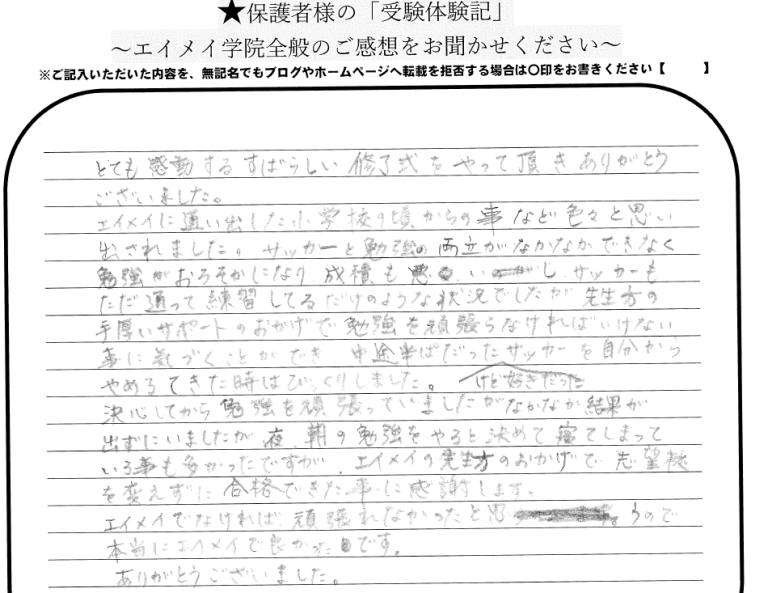 ★保護者様の「受験体験記」
～エイメイ学院全般のご感想をお聞かせください～
※ご記入いただいた内容を、無記名でもブログやホームページへ転載を拒否する場合は〇印をお書きください【　　】
とても感動するすばらしい修了式をやって頂きありがとう
ございました。
エイメイに通い出した小学校の頃からの事など色々と思い
出されました。サッカーと勉強の両立がなかなかできなく
勉強がおろそかになり成績も悪いし、サッカーも
ただ通って練習してるだけのような状況でしたが先生方の
手厚いサポートのおかげで勉強を頑張らなければいけない
事に気づくことができ、中途半ぱだったサッカーを自分から
やめるてきた時はびっくりしました。けど好きだった
決心してから勉強を頑張っていましたがなかなか結果が
出ずにいましたが夜、朝の勉強をやると決めて寝てしまって
いる事も多かったですが、エイメイの先生方のおかげで志望校
を変えずに合格できた事に感謝します。
エイメイでなければ頑張れなかったと思うので
本当にエイメイで良かったです。
ありがとうございました。